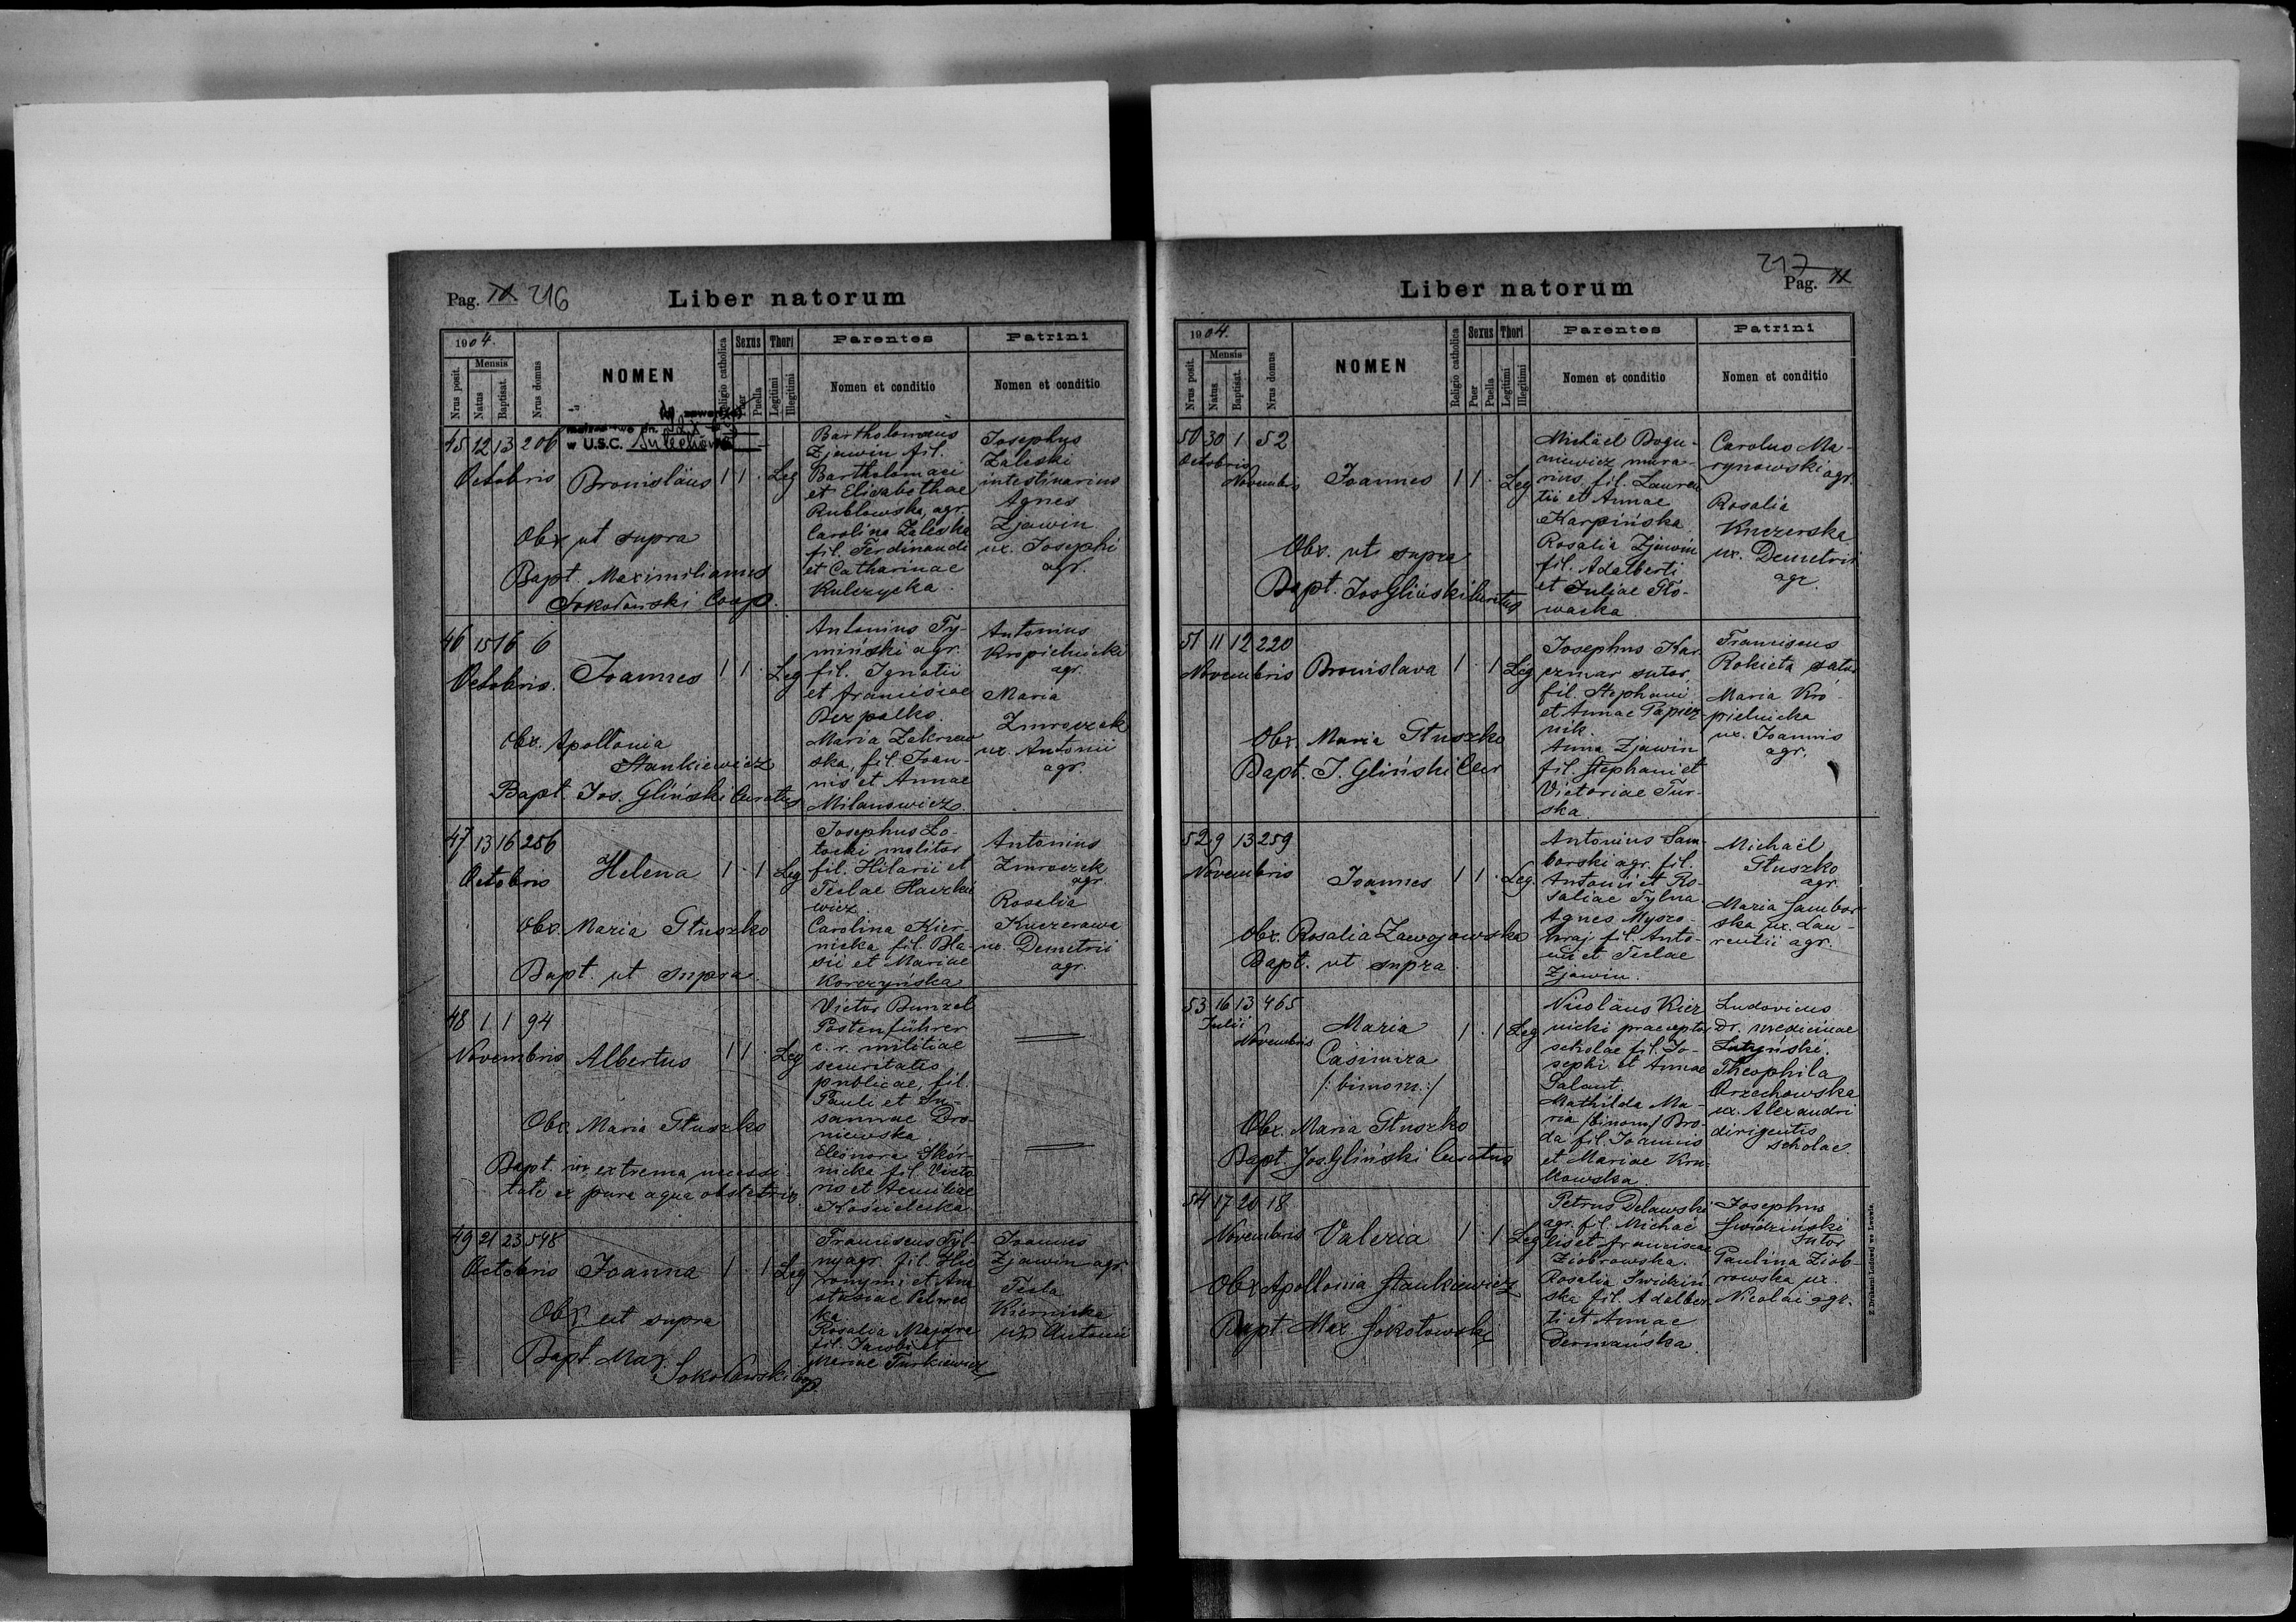 Pag. IX 216
Liber natorum
1904.
Mensis
Nrus posit.
Natus
Baptisat.
Nrus domus
NOMEN
Religio catholica
Sexus
Puer
Puella
Thori
Legitimi
Illegitimi
Parentes
Nomen et conditio
Patrini
Nomen et conditio
w U.S.C.
45 12 13 206
Octobris
Bronisläus 1 1 . Leg
Obx ut supra
Bapt. Maximilianus
Sokołowski Coop.
Bartholomäus
Zjawin fil.
Bartholomaei
et Elisabethae
Rublowska, agr.
Carolina Zaleska
fil. Ferdinandi
et Catharinae
Kulczycka.
Josephus
Zaleski
intestinarius
Agnes
Zjawin
ux. Josephi
agr.
46 15 16 6
Octobris.
Joannes 1 1 . Leg
Obx. Apollonia
Stankiewicz
Bapt. Jos. Gliński Curatus
Antonius Ty-
miński agr.
fil. Ignatii
et Franciscae
Bezpalko.
Maria Zakrzew
ska, fil. Joan-
nis et Annae
Milanowicz.
Antonius
Kropielnicki
agr.
Maria
Zmroczek
ux. Antonii
agr.
47 13 16 256
Octobris
Helena 1 . 1 Leg
Obx. Maria Głuszko
Bapt. ut supra
Josephus Lo-
tocki molitor
fil. Hilarii et
Teclae Haczkie
wicz.
Carolina Kier-
nicka fil. Bla-
sii et Mariae
Korczyńska
Antonius
Zmroczek
agr.
Rosalia
Kuczerawa
ux. Demetrii
agr.
48 1 1 94
Novembris
Albertus 1 1 . Leg
Obx. Maria Głuszko
Bapt. in extrema necessi-
tate ex pura aqua obstetrix
Victor Bunzel
Postenführer
c. r. militiae
securitatis
publicae, fil.
Pauli et Su-
sannae Dro-
niewska
Eleonora Skór-
nicka fil. Victo
ris et Aemiliae
Kościelecka
49 21 23 548
Octobris
Joanna 1 . 1 Leg
Obx ut supra
Bapt. Max.
Sokołowski Coop
Franciscus Tyl-
ny agr. fil. Hie
ronymi et Ana
stasiae
ka
Rosalia
fil. Jacobi et
Mariae Turkiewicz
Joannes
Zjawin agr.
Tecla
Kiernicka
ux. Antonii
217
Pag. X
Liber natorum
1904.
Mensis
Nrus posit.
Natus
Baptisat.
Nrus domus
NOMEN
Religio catholica
Sexus
Puer
Puella
Thori
Legitimi
Illegitimi
Parentes
Nomen et conditio
Patrini
Nomen et conditio
50 30 1 52
Octobris
Novembris
Joannes 1 1 . Leg
Obx. ut supra
Bapt. Jos Gliński Curatus
Michäel Bogu-
niewicz mura-
rius, fil. Lauren
tii et Annae
Karpińska
Rosalia Zjawin
fil. Adalberti
et Juliae Sło-
wacka
Carolus Ma-
rynowski agr.
Rosalia
Kuczerska
ux. Demetrii
agr.
51 11 12 220
Novembris
Bronislava 1 . 1 Leg
Obx. Maria Głuszko
Bapt. J. Gliński Cur
Josephus Kar
czmar sutor,
fil. Stephani
et Annae Papież-
nik.
Anna Zjawin
fil. Stephani et
Victoriae Tur-
ska.
Franciscus
Rokieta sutor
Maria Kro-
pielnicka
ux. Joannis
agr.
52 9 13 259
Novembris
Joannes 1 1 . Leg.
Obx. Rosalia Zawojowska
Bapt. ut supra.
Antonius Sam-
borski agr. fil.
Antonii et Ro-
saliae Tylna.
Agnes Myszo-
hraj fil. Anto-
nii et Teclae
Zjawin.
Michaël
Głuszko
agr.
Maria Sambor
ska ux. Lau-
rentii agr.
53 16 13 465
Julii
Novembris
Maria
Casimira
/: binom :/
1 . 1 Leg
Obx. Maria Głuszko
Bapt. Jos. Gliński Curatus
Nicoläus Kier
nicki praeceptor
scholae fil. Jo-
sephi et Annae
Salamt.
Mathilda Ma-
ria /binom/ Bro-
da fil. Joannis
et Mariae Kru-
kowska.
Ludovicus
dr. medicinae
Theophila
Orzechowska
ux. Alexandri
dirigentis
scholae
54 17 20 18
Novembris
Valeria 1 . 1 Leg
Obx Apollonia Stankiewicz
Bapt Max Sokołowski
Petrus Delawski
agr. fil. Michaë
lis et Franciscae
Ziobrowska.
Rosalia Swidzin
ska fil. Adalber
ti et Annae
Dermańska.
Josephus
Swidziński
sutor
Paulina Ziob-
rowska ux.
Nicolai agr.
Z Drukarni Ludowej we Lwowie.